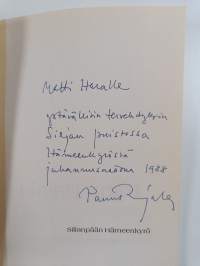 Matti Heralle
ystävällisin terveisin
Siljan puistossa
Hämeenkyrössä
juhannusaattona 1988
Panu Rajala
Sillanpään Hämeenkyrö